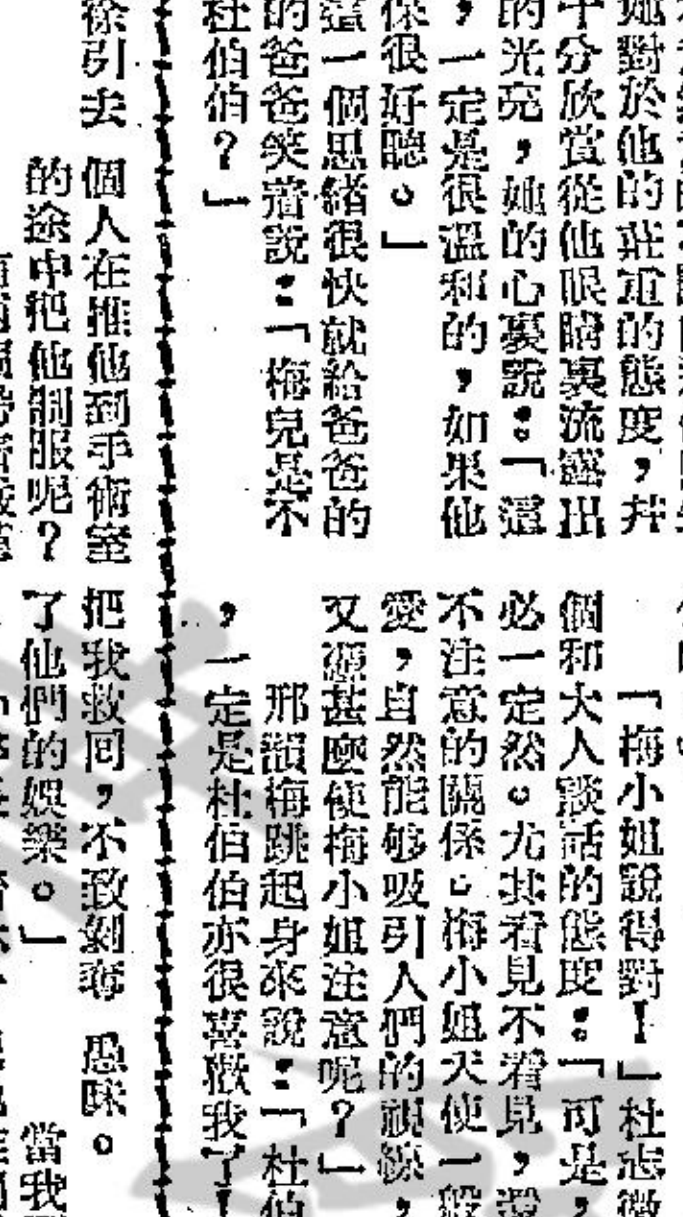 她對於他的莊重的態度，幷
十分欣賞從他眼睛裏流露出
的光亮，她的心裏說：「這
，一定是很溫和的，如果他
很好聽。」
這一個思緒很快就給爸爸的
的爸爸笑着說：「梅兒是不
杜伯伯？」
「梅小姐說得對！」杜志微
個和大人談話的態度：「可是，
必一定然。尤其看見不着見，還
不注意的關係。梅小姐天使一般
愛，自然能够吸引人們的視線，
又憑甚麼使梅小姐注意呢？」
邢韻梅跳起身來說：「杜伯
，一定是杜伯伯亦很喜歡我了！
徐引去
個人在推他到手術室
的途中把他制服呢？
把我救回，不致剝奪
了他們的娛樂。」
愚昧。
當我